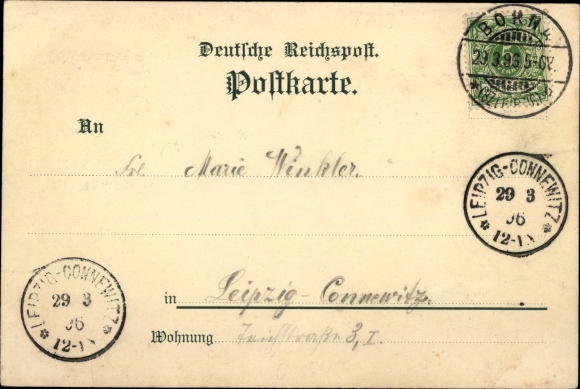 BORNA
29.3.96.5-6N.
*(BZ.LEIPZIG)*
5
Deutsche Reichspost.
Postkarte.
An
Marie Winkler.
LEIPZIG-CONNEWITZ
29 3
96
12-1N
LEIPZIG-CONNEWITZ
29 3
96
12-1N
in Leipzig-Connewitz.
Wohnung 3, I.